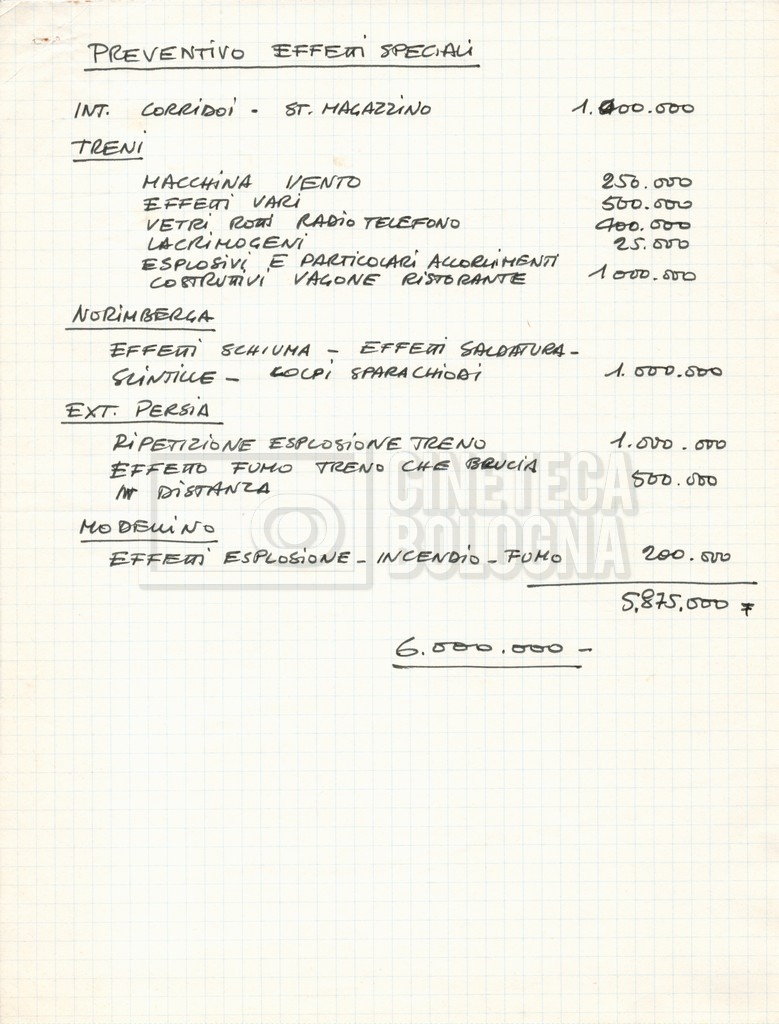 PREVENTIVO EFFETTI SPECIALI
INT. CORRIDOI - ST. MAGAZZINO 1.000.000
TRENI
MACCHINA VENTO 250.000
EFFETTI VARI 500.000
VETRI ROTTI RADIO TELEFONO 400.000
LACRIMOGENI 25.000
ESPLOSIVI E PARTICOLARI ACCORGIMENTI
COSTRUTTIVI VAGONE RISTORANTE 1000.000
NORIMBERGA
EFFETTI SCHIUMA - EFFETTI SALDATURA -
SCINTILLE - COLPI SPARACHIODI 1.000.000
EXT. PERSIA
RIPETIZIONE ESPLOSIONE TRENO 1.000.000
EFFETTO FUMO TRENO CHE BRUCIA
IN DISTANZA 500.000
MODELLINO
EFFETTI ESPLOSIONE - INCENDIO - FUMO 200.000
5.875.000 =
6.000.000 -
CINETECA
BOLOGNA